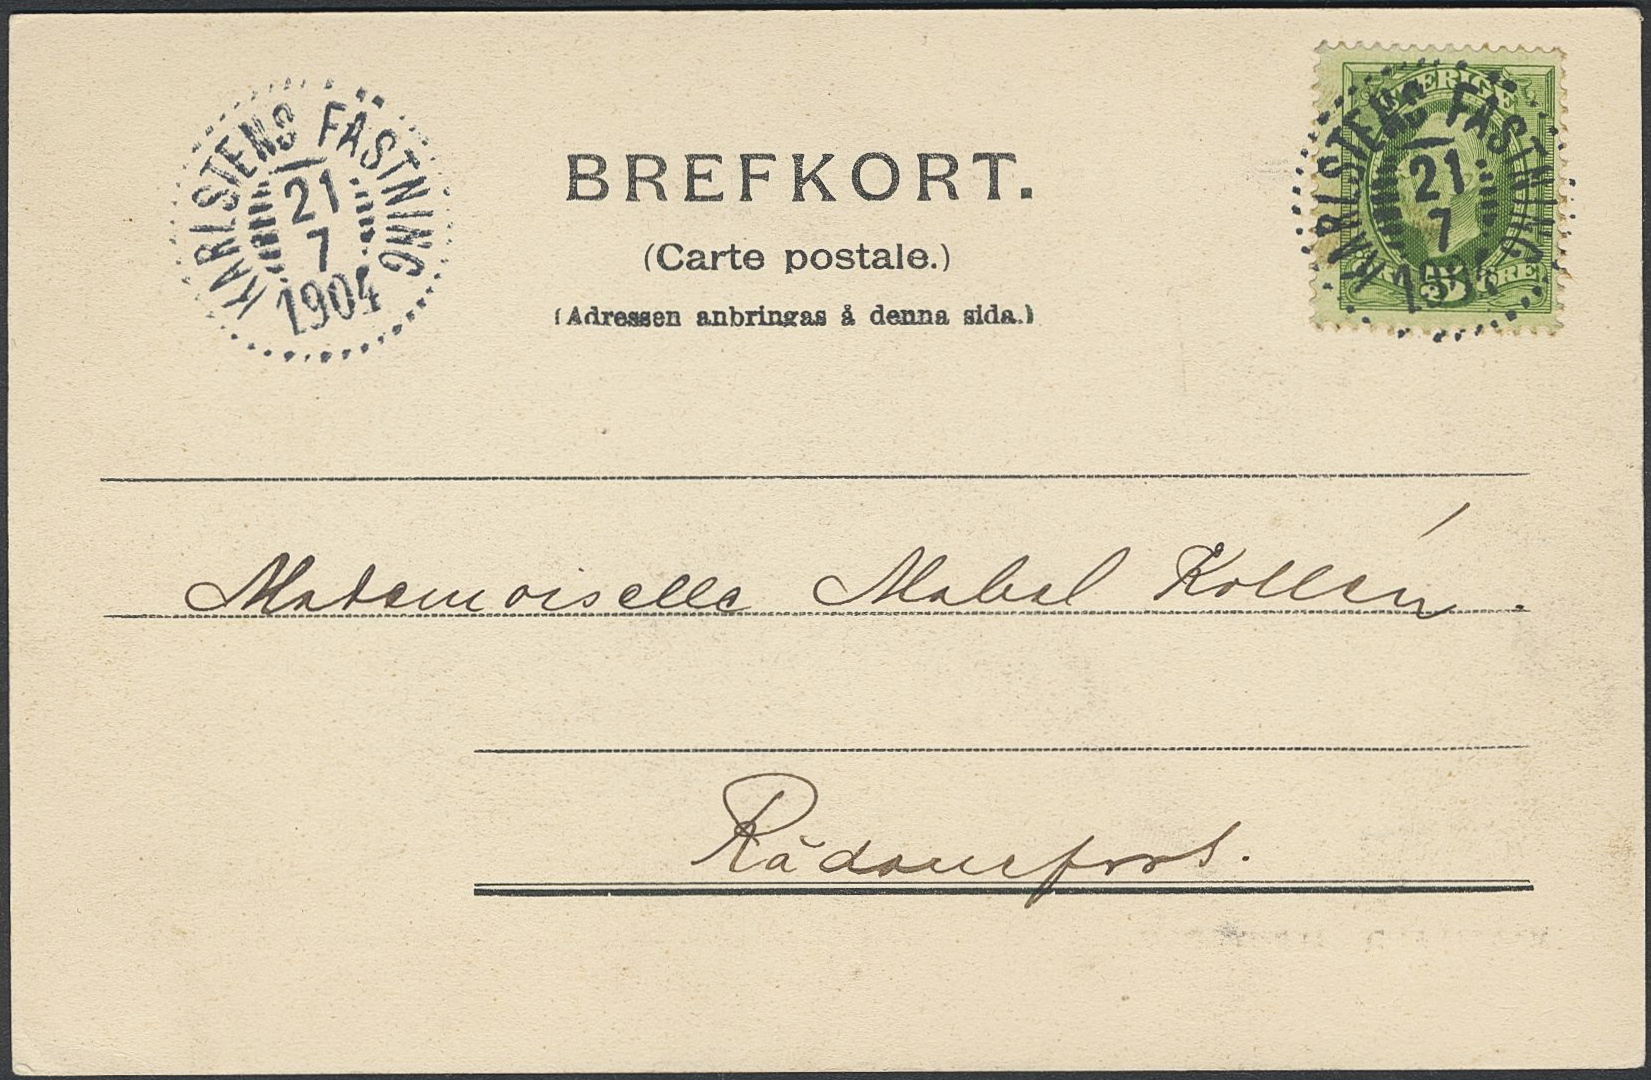 KARLSTENS FÄSTNING
21
7
1904
BREFKORT.
(Carte postale.)
(Adressen anbringas å denna sida.)
SVERIGE
KARLSTENS FÄSTNING
21
7
1904
5 ÖRE
Mademoiselle Mabel Kollén.
Rådanefors.